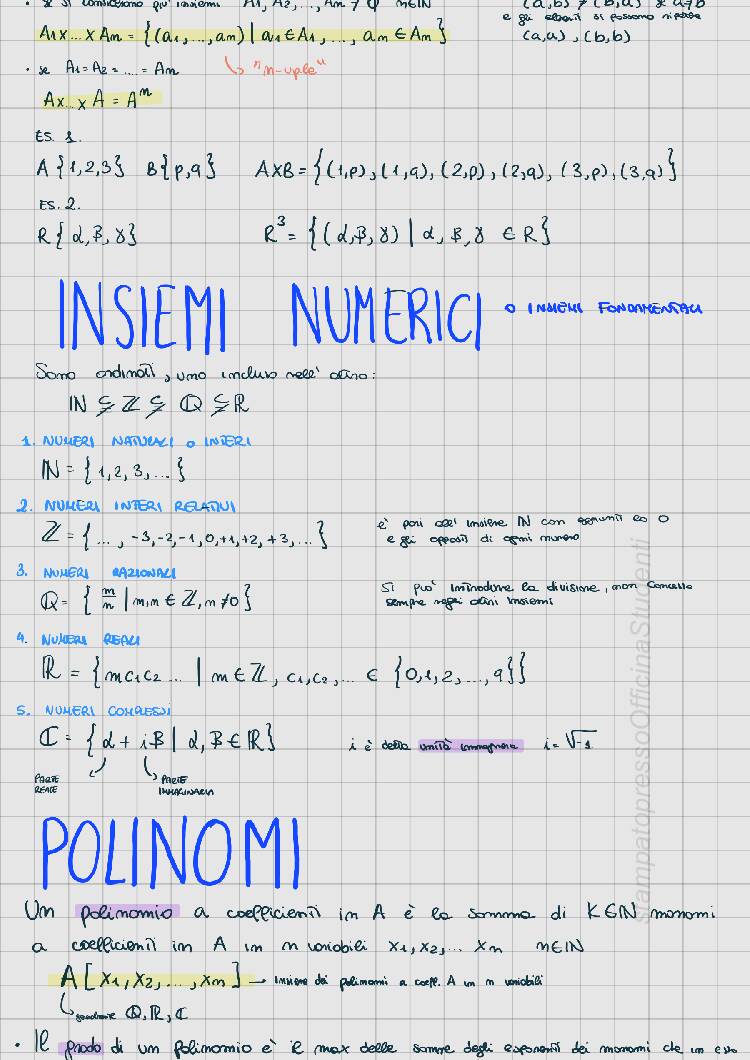 · se si considerano piu' insiemi A1, A2, ..., Am ≠ ∅ m∈IN
(a,b) ≠ (b,a) se a≠b
e gli elementi si possono ripetere
A1x...x Am = {(a1,...,am) | a1∈A1,..., am∈Am}
(a,a), (b,b)
· se A1=A2=....=Am
"m-uple"
Ax...x A = A^m
ES. 1.
A {1,2,3} B{p,q} AxB = {(1,p), (1,q), (2,p), (2,q), (3,p), (3,q)}
ES. 2.
R{α,β,γ} R³ = {(α,β,γ) | α,β,γ ∈ R}
INSIEMI NUMERICI o INSIEMI FONDAMENTALI
Sono ordinati, uno incluso nell' altro:
IN ⊊ ℤ ⊊ ℚ ⊊ ℝ
1. NUMERI NATURALI o INTERI
IN = {1,2,3,...}
2. NUMERI INTERI RELATIVI
ℤ = {..., -3,-2,-1,0,+1,+2,+3,...}
è pari all' insieme IN con aggiunti lo 0
e gli opposti di ogni numero
3. NUMERI RAZIONALI
ℚ = {m/n | m,n ∈ ℤ, n≠0}
si puo' introdurre la divisione, non concessa
sempre negli altri insiemi
4. NUMERI REALI
ℝ = {mc1c2... | m∈ℤ, c1,c2,... ∈ {0,1,2,...,9}}
5. NUMERI COMPLESSI
ℂ = {α + iβ | α,β∈ℝ}
i è detta unità immaginaria i=√-1
PARTE
REALE
PARTE
IMMAGINARIA
POLINOMI
Un polinomio a coefficienti in A è la somma di K∈IN monomi
a coefficienti in A in n variabili x1,x2,... xn n∈IN
A[x1,x2,...,xn] → insieme dei polinomi a coeff. A in n variabili
ℚ,ℝ,ℂ
· Il grado di un polinomio è il max delle somme degli esponenti dei monomi che in
stampatopressoOfficinaStudenti